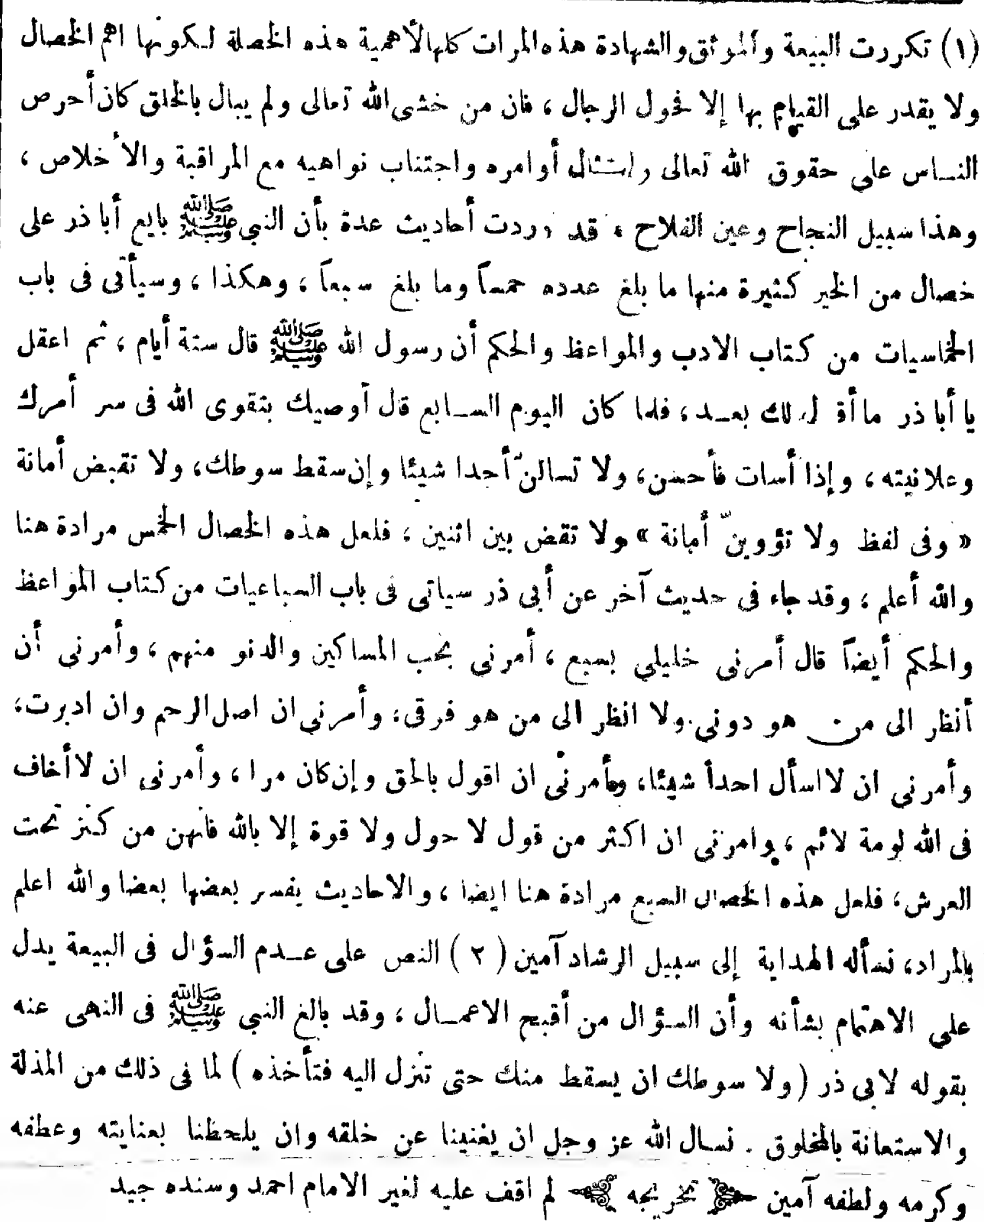 (١) تكررت البيعة والموثق والشهادة هذه المرات كلها لأهمية هذه الخصلة لكونها اهم الخصال
ولا يقدر على القيام بها إلا فحول الرجال ، فان من خشى الله تعالى ولم يبال بالخلق كان أحرص
الناس على حقوق الله تعالى وامتثال أوامره واجتناب نواهيه مع المراقبة والأخلاص ،
وهذا سبيل النجاح وعين الفلاح ، قد وردت أحاديث عدة بأن النبي ﷺ بايع أبا ذر على
خصال من الخير كثيرة منها ما بلغ عدده خمساً وما بلغ سبعاً ، وهكذا ، وسيأتى فى باب
الخماسيات من كتاب الادب والمواعظ والحكم أن رسول الله ﷺ قال ستة أيام ، ثم اعقل
يا أبا ذر ما أقول لك بعد ، فلما كان اليوم السابع قال أوصيك بتقوى الله فى سر أمرك
وعلانيته ، وإذا أسات فأحسن، ولا تسالنّ أحدا شيئا وإن سقط سوطك، ولا تقبض أمانة
« وفى لفظ ولا تؤوينّ أمانة » ولا تقض بين اثنين ، فلعل هذه الخصال الخمس مرادة هنا
والله أعلم ، وقد جاء فى حديث آخر عن أبى ذر سياتى فى باب السباعيات من كتاب المواعظ
والحكم أيضاً قال أمرنى خليلي بسبع ، أمرنى بحب المساكين والدنو منهم ، وأمرنى أن
أنظر الى من هو دونى ولا انظر الى من هو فوقى، وأمرنى ان اصل الرحم وان ادبرت،
وأمرنى ان لا اسأل احداً شيئا، وأمرنى ان اقول بالحق وإن كان مرا ، وأمرنى ان لا أخاف
فى الله لومة لائم ، وامرنى ان اكثر من قول لا حول ولا قوة إلا بالله فانهن من كنز تحت
العرش، فلعل هذه الخصال السبع مرادة هنا ايضا ، والاحاديث يفسر بعضها بعضا والله اعلم
بالمراد، نسأله الهداية إلى سبيل الرشاد آمين (٢) النص على عدم السؤال فى البيعة يدل
على الاهتمام بشأنه وأن السؤال من أقبح الاعمال ، وقد بالغ النبي ﷺ فى النهى عنه
بقوله لابى ذر (ولا سوطك ان يسقط منك حتى تنزل اليه فتأخذه) لما فى ذلك من المذلة
والاستعانة بالمخلوق . نسال الله عز وجل ان يغنينا عن خلقه وان يلحظنا بعنايته وعطفه
وكرمه ولطفه آمين تخريجه لم اقف عليه لغير الامام احمد وسنده جيد